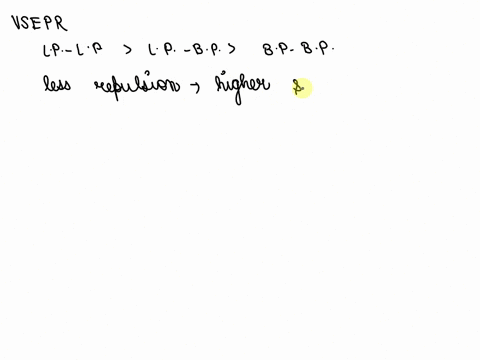 VSEPR
L.P.-L.P > L.P. -B.P. > B.P- B.P.
less repulsion → higher s